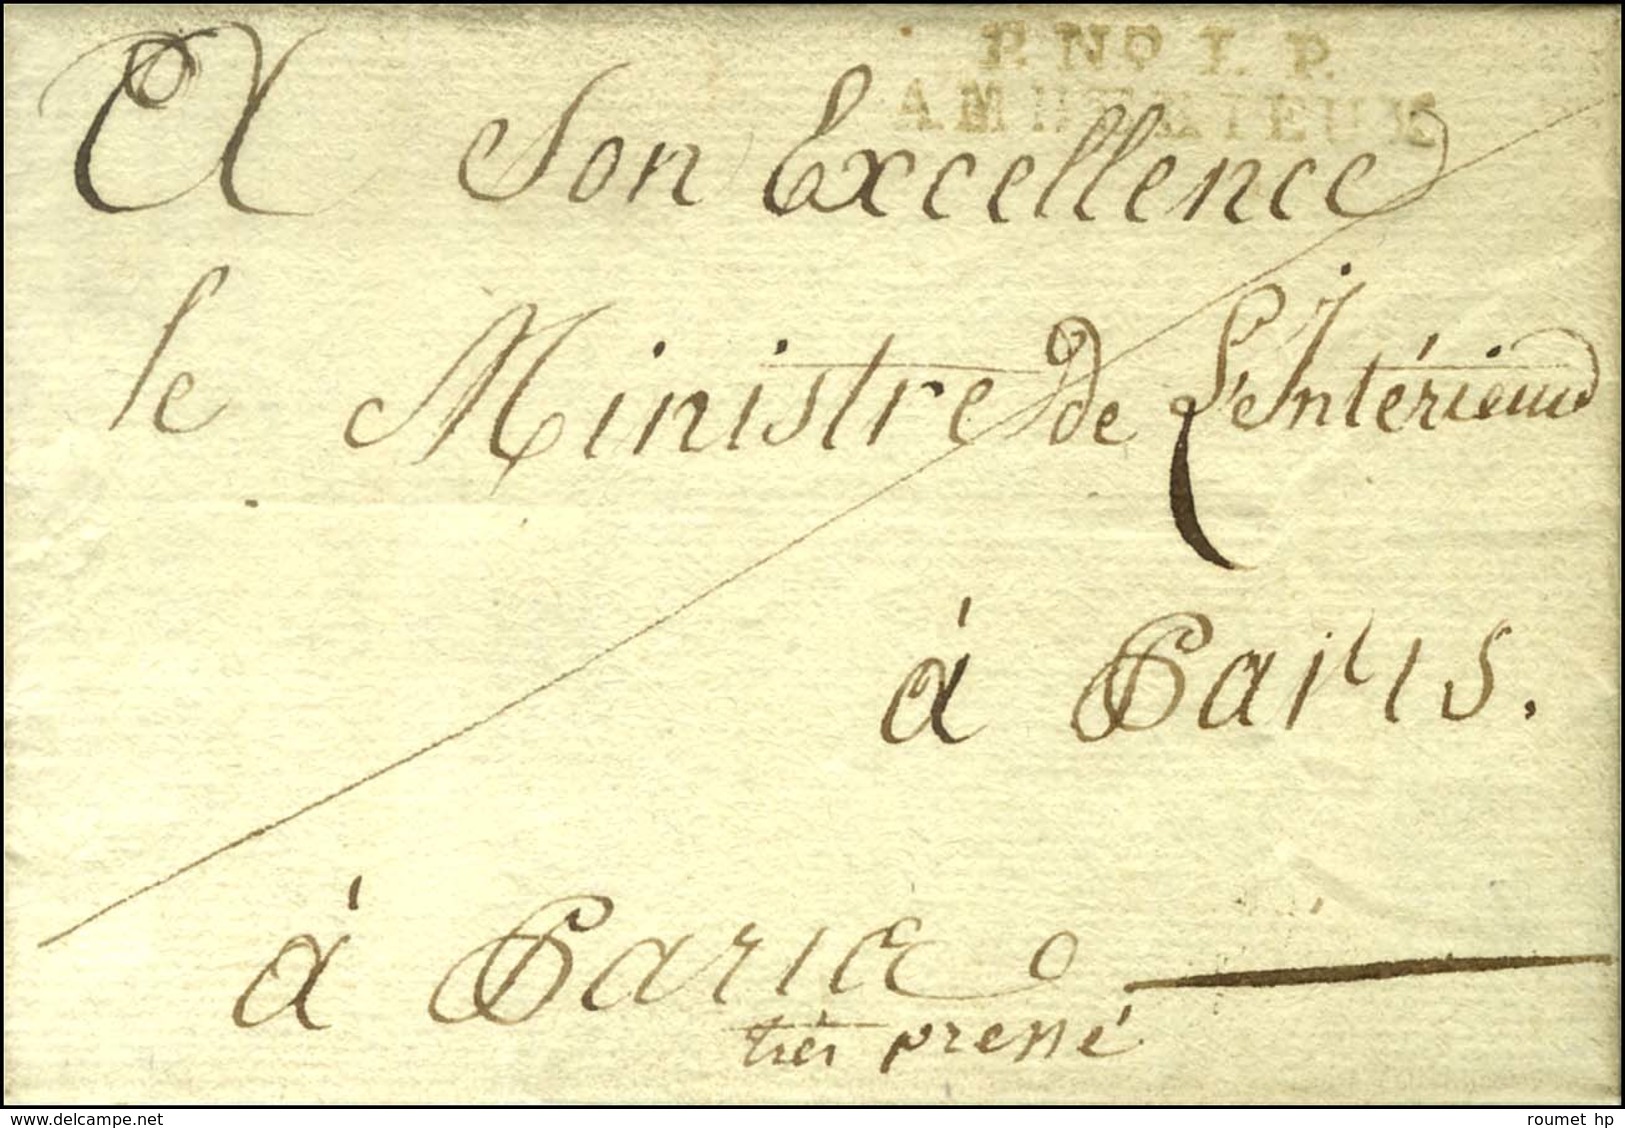 P. No. I. P.
A Son Excellence
le Ministre de L'Intérieur
à Paris.
à Paris
très pressé
delcampe.net
roumet hp